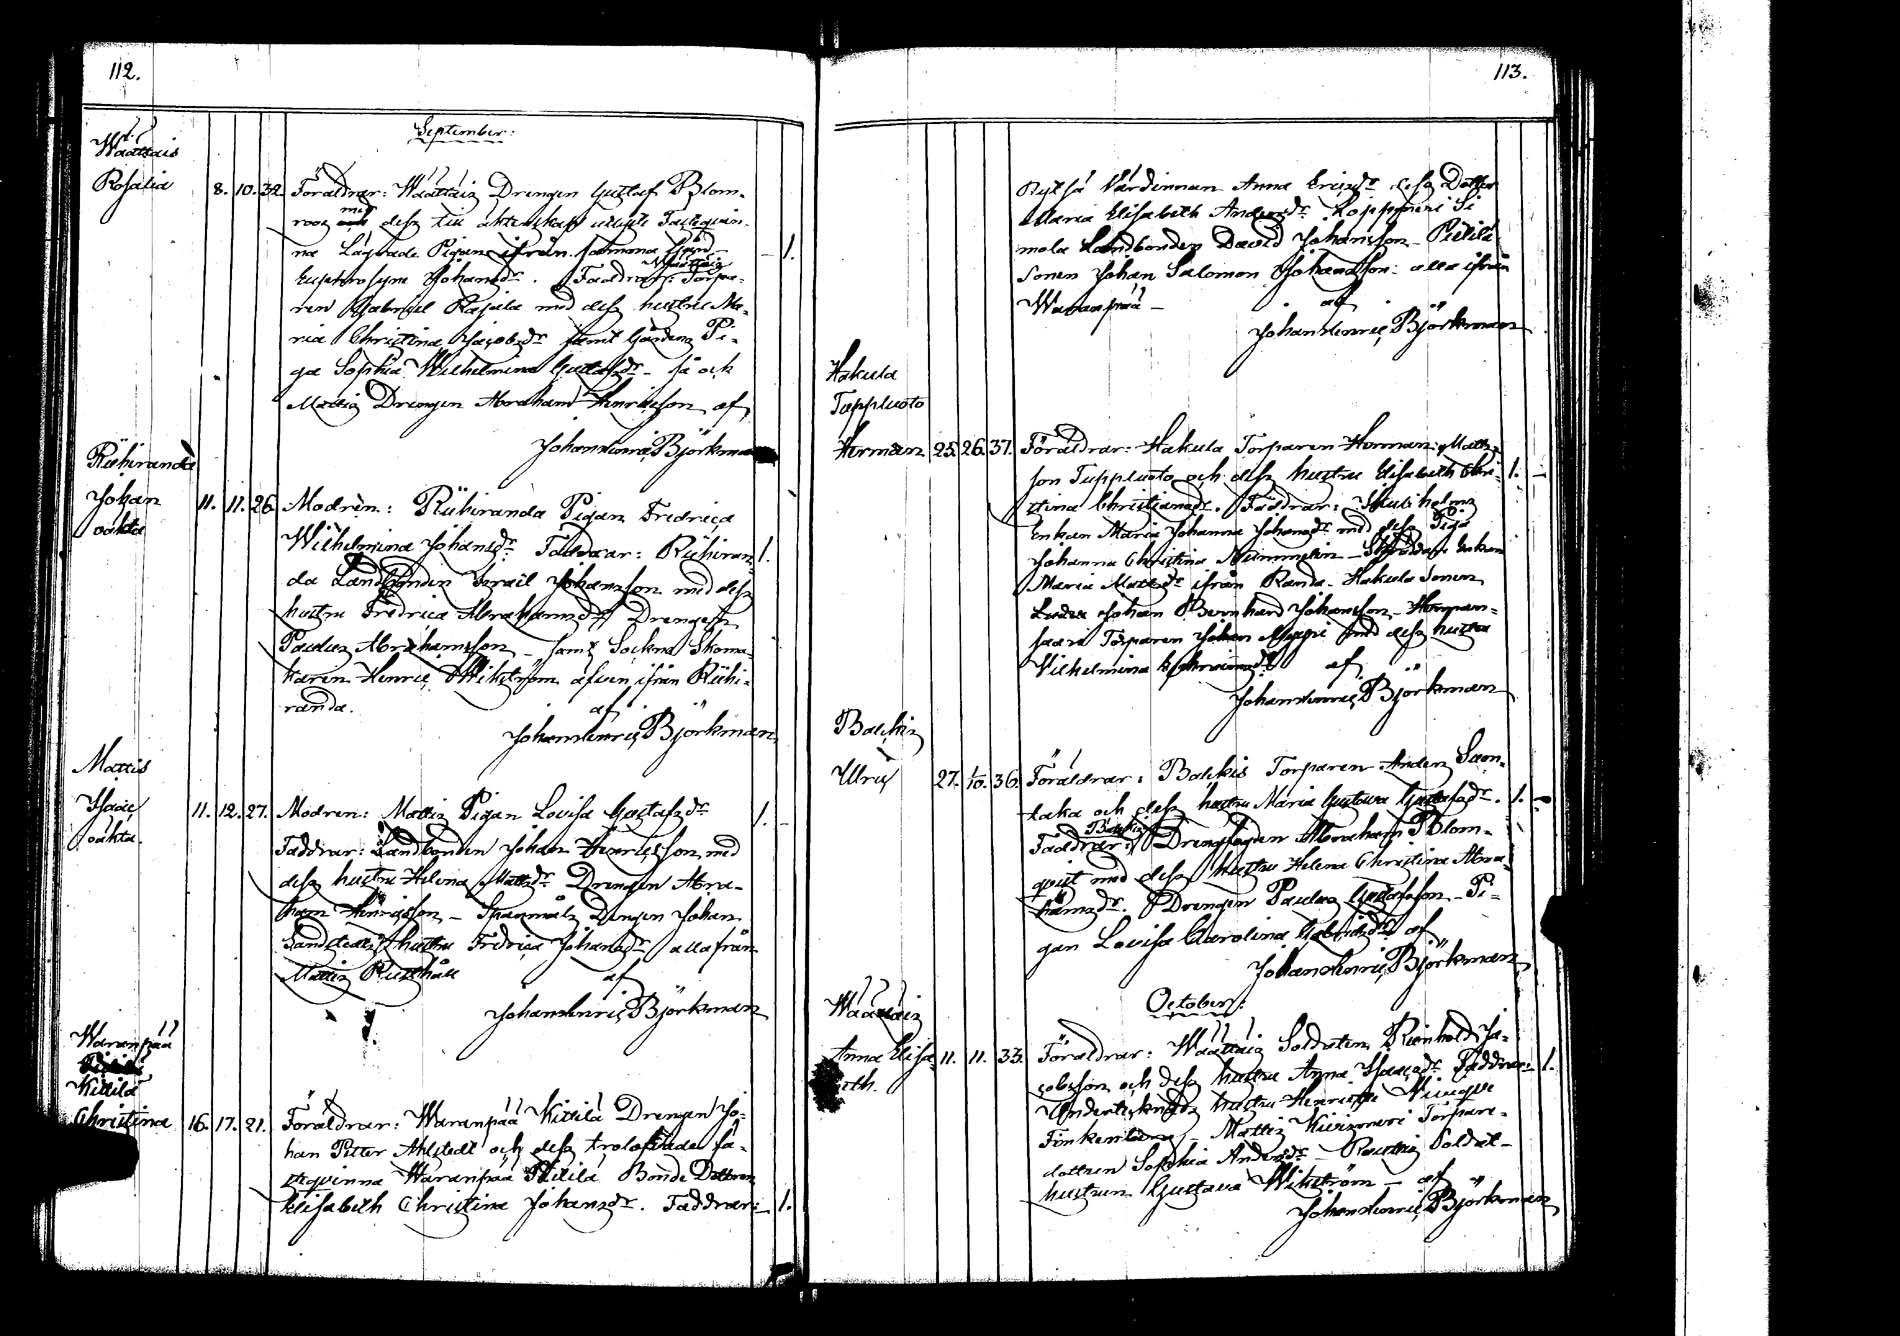 112.
September:
Wäättäis
Rosalia 8. 10. 32. Föräldrar: Wäättäis Drengen Gustaf Blom-
roos med dess till äktenskap utlyste Fästeqvin-
na Lägrade Pigan ifrån samma Gård
Euphrosyne Johansdr. Faddrar: Wäättäis Torpa- 1.
ren Gabriel Rajala med dess hustru Ma-
ria Christina Jacobsdr samt Gårdens Pi-
ga Sophia Wilhelmina Gustafsdr - så och
Mattis Drengen Abraham Henricsson af
Johan Henric Björkman
Riihiranda
Johan 11. 11. 26. Modren: Riihiranda Pigan Fredrica
oäkta Wilhelmina Johansdr. Faddrar: Riihiran- 1.
da Landbonden Israil Johansson med dess
hustru Fredrica Abrahamsdr Drengen
Paulus Abrahamsson - samt Sockne Skoma
karen Henric Wikström äfven ifrån Riihi-
randa. af
Johan Henric Björkman
Mattis
Isaac 11. 12. 27. Modren: Mattis Pigan Lovisa Gustafsdr 1. -
oäkta. Faddrar: Landbonden Johan Henricsson med
dess hustru Helena Mattsdr Drengen Abra-
ham Henricsson - Drengen Johan
Sandstedts hustru Fredrica Johansdr alla från
Mattis Rusthåll af
Johan Henric Björkman
Waranpää
Kittilä
Christina 16. 17. 21. Föräldrar: Waranpää Kittilä Drengen Jo-
han Petter Ahlstedt och dess trolofvade fä-
steqvinna Waranpää Pietilä Bonde Dottren
Elisabeth Christina Johansdr. Faddrar: 1.
113.
Nytså Värdinnan Anna Ericsdr dess Dotter
Maria Elisabeth Andersdr Si
mola Landbonden David Johansson - Pietilä
Sonen Johan Salomon Johansson: alla ifrån
Waranpää - af
Johan Henric Björkman
Hakula
Tuppluoto
Herman 25. 26. 37. Föräldrar: Hakula Torparen Herman Matts-
son Tuppluoto och dess hustru Elisabeth Chri- 1. -
stina Christiansdr. Faddrar:
Enkan Maria Johanna Johansdr med dess Piga
Johanna Christina Nummelin - Enkan
Maria Mattsdr ifrån Randa - Hakula Sonen
Johan Bernhard Johansson -
saari Torparen Johan med dess hustru
Vilhelmina af
Johan Henric Björkman
Balkis
Ulric 27. 1/10. 36. Föräldrar: Balkis Torparen Anders Suon-
taka och dess hustru Maria Gustava Gustafsdr. 1. -
Faddrar: Balkis Drengfogden Abraham Blom-
qvist med dess hustru Helena Christina Abra-
hamsdr. Drengen Paulus Gustafsson - Pi-
gan Lovisa Carolina Gabrielsdr af
Johan Henric Björkman
October:
Wäättäis
Anna Elisa- 11. 11. 33. Föräldrar: Wäättäis Soldaten Reinhold Ja-
beth. cobsson och dess hustru Anna Isaacsdr Faddrar: 1.
Undertecknads hustru Henrietta
- Mattis Kivinieri Torpare-
dottren Sophia Andersdr - Soldat-
hustrun Gustava Wikström - af
Johan Henric Björkman